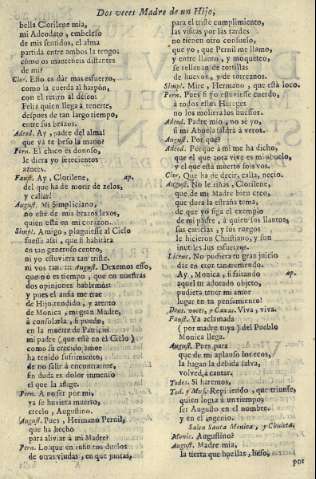 Dos veces Madre de un Hijo,
bella Clorilene mia,
mi Adeodato, embeleso
de mis sentidos, el alma
partida entre ambos la tengo:
cómo os manteneis distantes
de mi?
Clor. Eso es dar mas esfuerzo,
como la cuerda al harpón,
con el retiro al deseo:
Feliz quien llega á tenerte,
despues de tan largo tiempo,
entre sus brazos.
Adeod. Ay, padre del alma!
que yá te beso la mano!
Pern. El chico es donoso,
le diera yo setecientos
azotes.
Faust. Ay, Clorilene, ap.
del que ha de morir de zelos,
y callar!
August. Mi Simpliciano,
no esté de mis brazos lexos,
quien está en mi corazon.
Simpl. Amigo, pluguiese al Cielo
fuese asi, que si habitára
en tan generoso centro,
ni yo estuviera tan triste.
ni vos tan August. Dexemos eso,
que no es tiempo, que en nuestras
dos opiniones hablemos:
y pues el ansia me trae
de Hijo rendido, y atento
de Monica, mi gran Madre,
á consolarla, si puedo,
en la muerte de Patricio
mi padre (que esté en el Cielo)
como su crecido amor
ha tenido sufrimiento,
de no salir á encontrarme,
sin duda es dolor inmenso
el que la aflige.
Pern. A no ser por mi,
ya se huviera muerto,
creelo, Augustino.
August. Pues, Hermano Pernil,
que ha hecho
para aliviar á mi Madre?
Pern. Lo que en infinitos duelos
de otras viudas, en que juntas,
para el triste cumplimiento,
las visitas por las tardes
no tienen otro consuelo,
que yo, que Pernil me llamo,
y entre llanto, y moqueteo,
se rellenan de tortillas
de huevos, y de torreznos.
Simpl. Mire, Hermano, que está loco.
Pern. Pues si yo estuviese cuerdo,
á todos esos Hereges
no los moliera los huesos?
Adeod. Padre mio, no es yo,
si mi Abuela saldrá á veros.
August. Por qué?
Adeod. Porque á mi me ha dicho,
que el que aora vive es mi abuelo,
y el que está muerto sois vos.
Clor. Que ha de decir, calla, necio.
August. No le riñas, Clorilene,
que de mi Madre bien creo,
que dora la estraña tema,
de que yo siga el exemplo
de mi padre, á quien sus llantos,
sus caricias, y sus ruegos
le hicieron Christiano, y son
inutiles sus esfuerzos.
Licenc. No pudiera tu gran juicio
Ay, Monica, si faltando ap.
aquel tu adorado objeto,
pudiera tener mi amor
lugar en tu pensamiento!
Dent. voces, y Caxas. Viva, viva.
Faust. Ya aclamada
(por madre tuya) del Pueblo
Monica llega.
August. Pues para
que de mi aplauso los ecos,
la hagan la debida salva,
volved á cantar.
Todos. Si haremos,
Tod. y Mus. Repitiendo, que triunfo,
quien logra á un tiempo
ser Augusto en el nombre,
y en el ingenio.
Salen Santa Monica, y Chuleta.
Monic. Augustino?
August. Madre mia,
la tierra que huellas, beso,
por